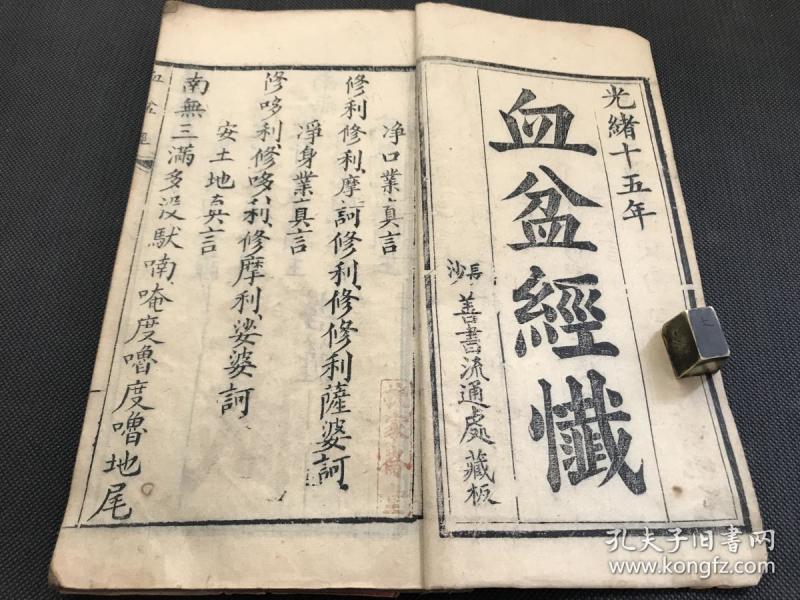 光緒十五年
血盆經懺
長沙
善書流通處藏板
净口業真言
修利修利摩訶修利修修利薩婆訶
淨身業真言
修哆利修哆利修摩利娑婆訶
安土地真言
南無三滿多没馱喃唵度嚕度嚕地尾
孔夫子旧书网
www.kongfz.com